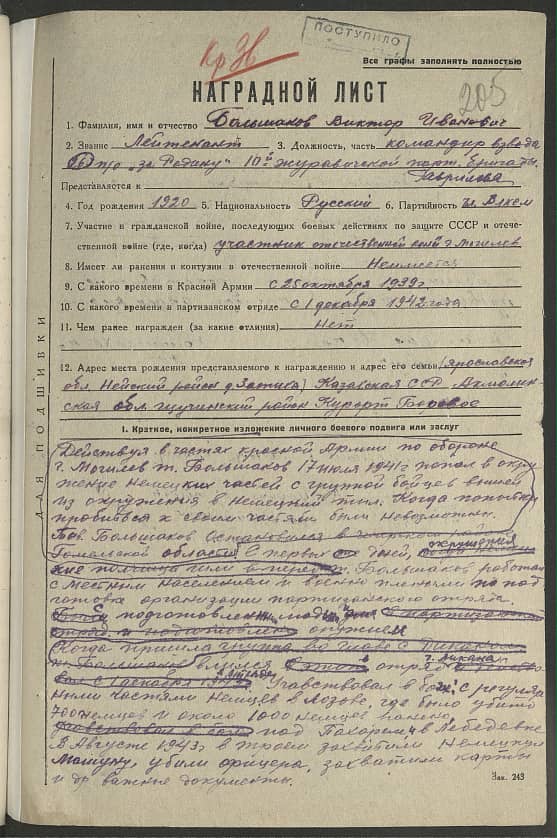 ПОСТУПИЛО
Кр Зв
Все графы заполнять полностью
205
НАГРАДНОЙ ЛИСТ
1. Фамилия, имя и отчество Большаков Виктор Иванович
2. Звание Лейтенант 3. Должность, часть командир взвода
п/о "за Родину" 10й журавичской парт. бригады.
Гаврилова
Представляется к
4. Год рождения 1920 5. Национальность Русский 6. Партийность чл. Влксм
7. Участие в гражданской войне, последующих боевых действиях по защите СССР и отече-
ственной войне (где, когда) участник отечественной войн г. Могилев
8. Имеет ли ранения и контузии в отечественной войне Неимеется
9. С какого времени в Красной Армии с 25 октября 1939г
10. С какого времени в партизанском отряде с 1 декабря 1942 года
11. Чем ранее награжден (за какие отличия) Нет
12. Адрес места рождения представляемого к награждению и адрес его семьи (ярославская
обл. Нейский район д. ) Казавская ССР. Акмолин-
ская обл. щучинский район Курорт Боровое
I. Краткое, конкретное изложение личного боевого подвига или заслуг
Действуя в частях красной Армии по обороне
г. Могилев т. Большаков 17 июля 1941г попал в окру
жение немецких частей с группой бойцев вышел
из окружения в немецкий тыл. Когда попытки
пробиться к своим частям были невозможны.
Тов. Большаков остановился в
Гомельской области. С первых дней, окружения
т. Большаков работал
с местным населением и военно пленными по под
готовке организации партизанского отряда.
подготовленными
оружием
Когда пришла группа во главе с Диканом
т. Большаков влился в отряд т. Дикана
с 1 декабря 1942 Учавствовал в боях с регуляр
ными частями немцев в Лозове, где было убито
700 немцев и около 1000 немцев ранено,
учавствовал в боях под в Лебедевке
В Августе 1943г в троем захватили немецкую
машину, убили офицера, захватили карты
и др. важные документы.
Зак. 243
ДЛЯ ПОДШИВКИ